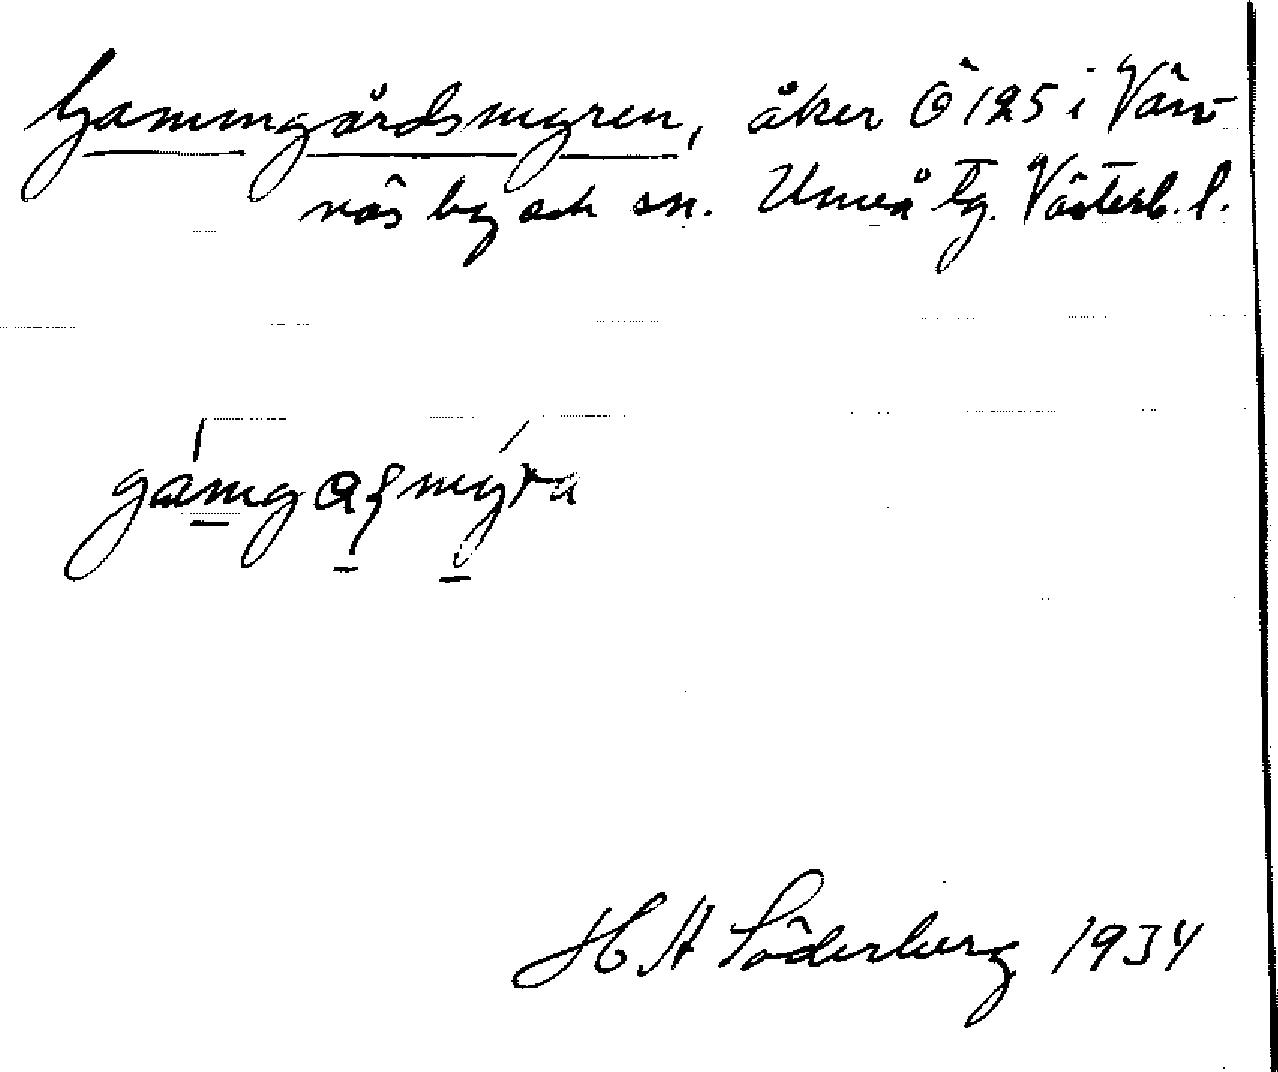 Gammgårdsmyren, åker Ö 125 i Vän-
näs by och sn. Umeå tg. Västerb. l.
gámgaʂmýra
H A Söderberg 1934